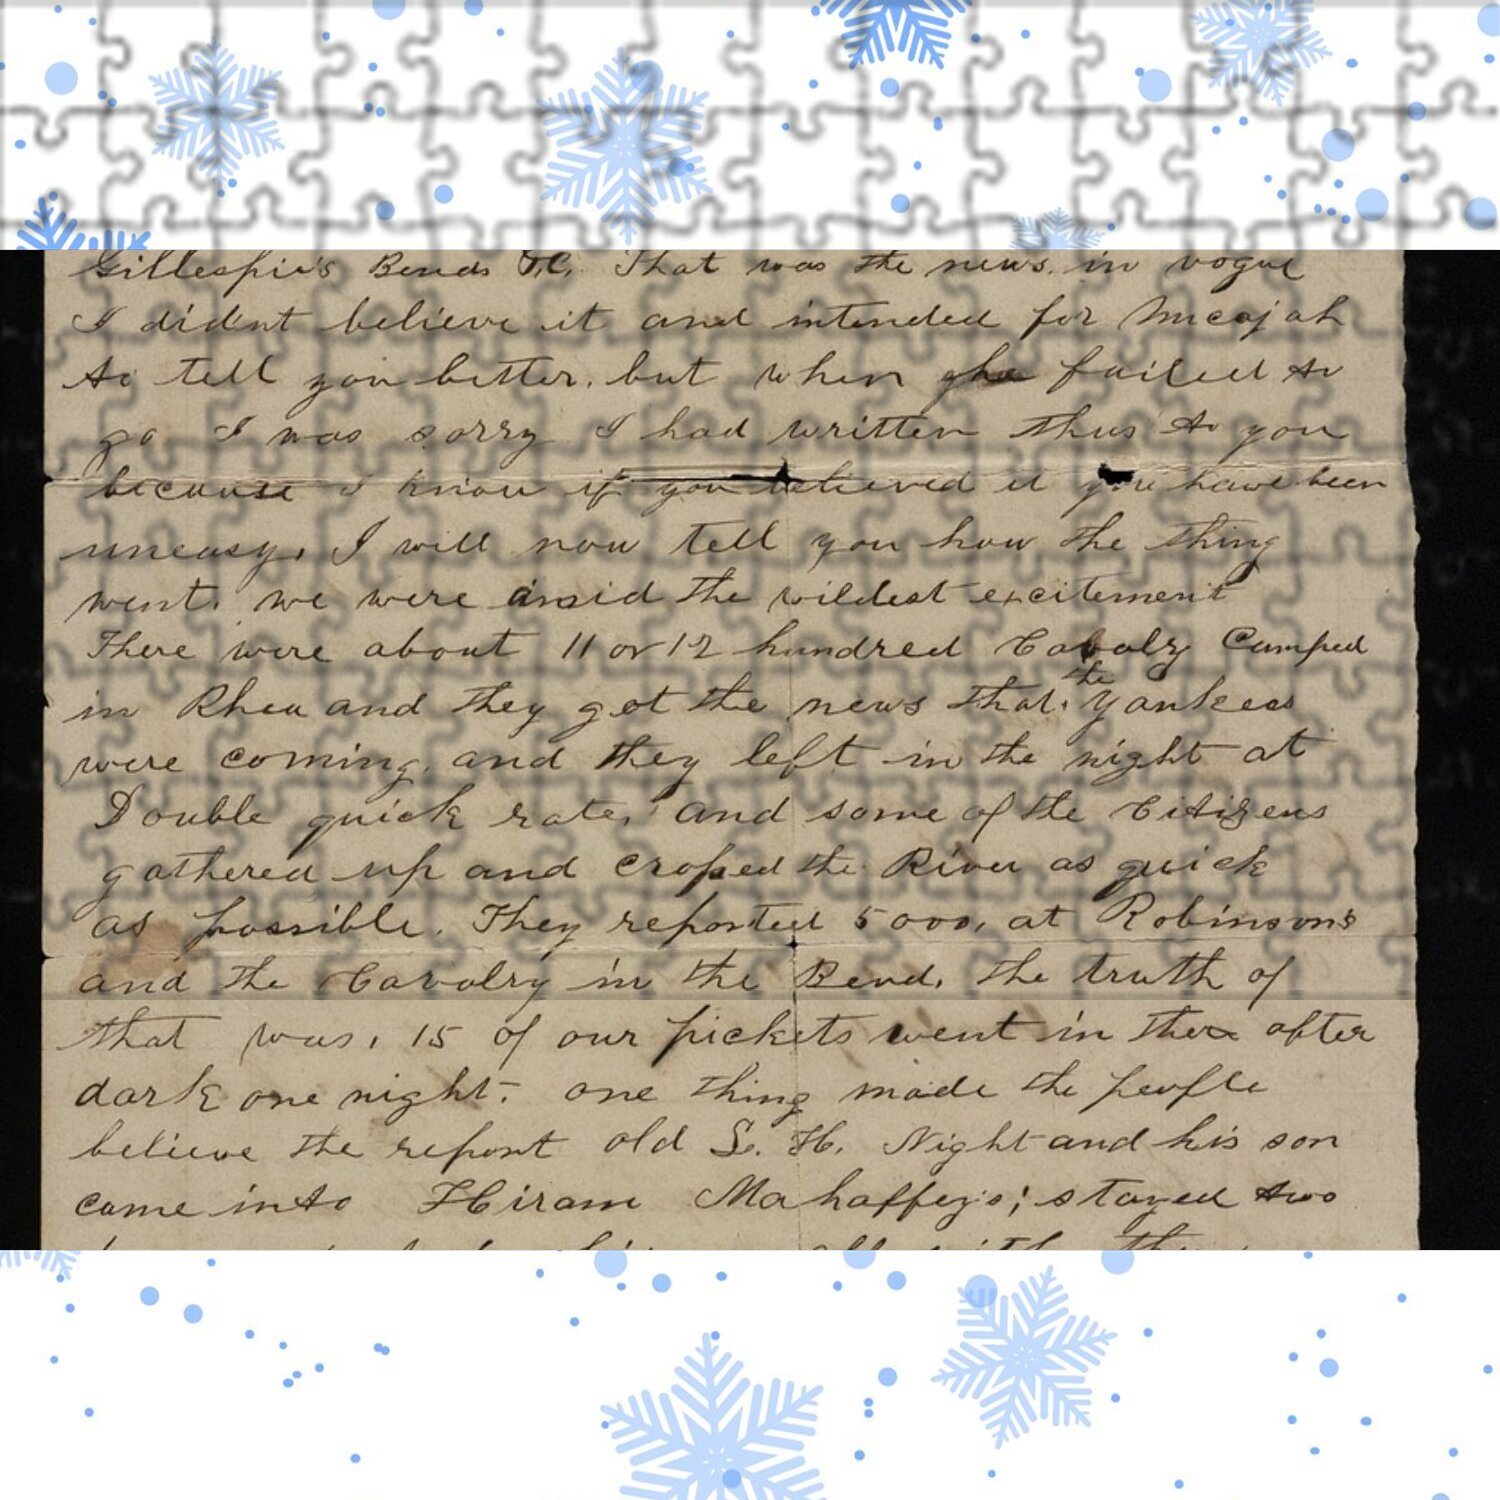 Gillespie's Bend &C. That was the news in vogue
I did'nt believe it and intended for Micajah
to tell you better, but when he failed to
go I was sorry I had written thus to you
because I know if you believed it you have been
uneasy. I will now tell you how the thing
went. we were in the wildest excitement
There were about 11 or 12 hundred Cavalry Camped
in Rhea and they got the news that the Yankees
were coming, and they left in the night at
Double quick rate, and some of the Citizens
gathered up and crossed the River as quick
as possible. They reported 5000, at Robinson's
and the Cavalry in the Bend, the truth of
that was, 15 of our pickets went in there after
dark one night. one thing made the people
believe the report old S. H. Night and his son
came into Hiram Mahaffey's; stayed two